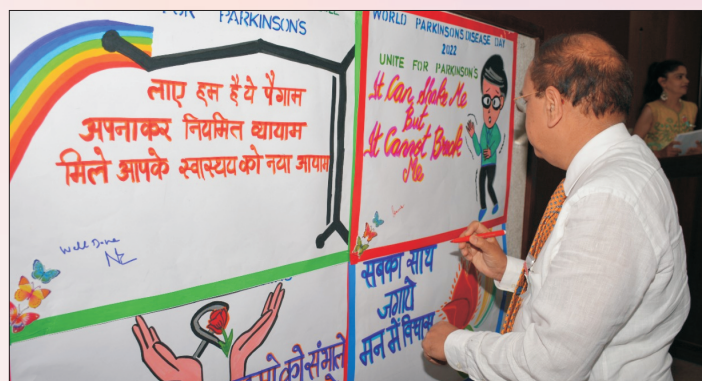 FOR PARKINSON'S
लाए हम है ये पैगाम
अपनाकर नियमित व्यायाम
मिले आपके स्वास्थय को नया आयाम
Well Done
WORLD PARKINSONS DISEASE DAY
2022
UNITE FOR PARKINSON'S
It Can Shake Me
But
It Cannot Break
Me
सबका साथ
जगाये
मन में विश्वास
को संभाले